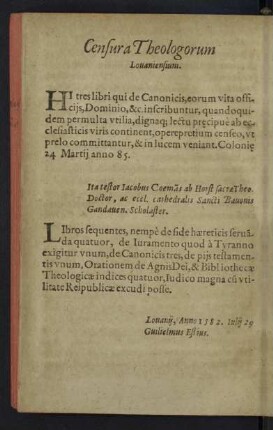 Censura Theologorum
Louaniensium.
HI tres libri qui de Canonicis, eorum vita offi-
cijs, Dominio, &c. inscribuntur, quandoqui-
dem permulta vtilia, dignaq; lectu præcipuè ab ec-
clesiasticis viris continent, operepretium censeo, vt
prelo committantur, & in lucem veniant. Colonię
24 Martij anno 85.
Ita testor Iacobus Coemãs ab Horst sacræ Theo.
Doctor, ac eccl. cathedralis Sancti Bauonis
Gandauen. Scholaster.
LIbros sequentes, nempè de fide hæreticis seruã-
da quatuor, de Iuramento quod à Tyranno
exigitur vnum, de Canonicis tres, de pijs testamen-
tis vnum, Orationem de Agnis Dei, & Bibliothecæ
Theologicæ indices quatuor, Iudico magna cũ vti-
litate Reipublicæ excudi posse.
Louanij, Anno 1582. Iulij 29
Guilielmus Estius.